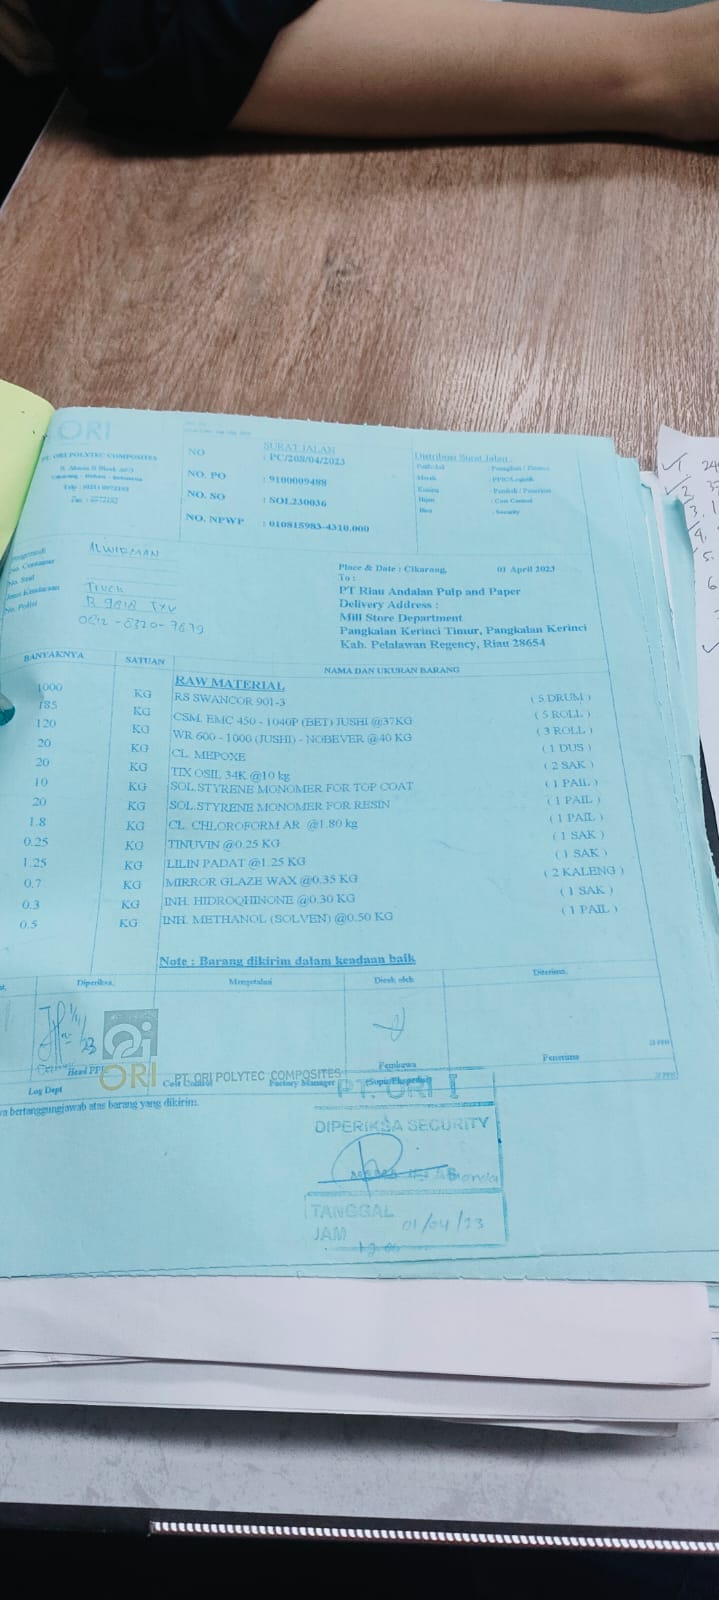 ORI
PT. ORI POLYTEC COMPOSITES
SURAT JALAN
NO : PC/208/04/2023
NO. PO : 9100009488
NO. SO : SOL230036
NO. NPWP : 010815983-4310.000
Distribusi Surat Jalan :
No. Container
No. Seal
Jenis Kendaraan Truck
No. Polisi
Place & Date : Cikarang, 01 April 2023
To :
PT Riau Andalan Pulp and Paper
Delivery Address :
Mill Store Department
Pangkalan Kerinci Timur, Pangkalan Kerinci
Kab. Pelalawan Regency, Riau 28654
BANYAKNYA SATUAN NAMA DAN UKURAN BARANG
RAW MATERIAL
1000 KG RS SWANCOR 901-3 ( 5 DRUM )
185 KG CSM. EMC 450 - 1040P (BET) JUSHI @37KG ( 5 ROLL )
120 KG WR 600 - 1000 (JUSHI) - NOBEVER @40 KG ( 3 ROLL )
20 KG CL. MEPOXE ( 1 DUS )
20 KG TIX OSIL 34K @10 kg ( 2 SAK )
10 KG SOL.STYRENE MONOMER FOR TOP COAT ( 1 PAIL )
20 KG SOL.STYRENE MONOMER FOR RESIN ( 1 PAIL )
1.8 KG CL. CHLOROFORM AR @1.80 kg ( 1 PAIL )
0.25 KG TINUVIN @0.25 KG ( 1 SAK )
1.25 KG LILIN PADAT @1.25 KG ( 1 SAK )
0.7 KG MIRROR GLAZE WAX @0.35 KG ( 2 KALENG )
0.3 KG INH. HIDROQHINONE @0.30 KG ( 1 SAK )
0.5 KG INH. METHANOL (SOLVEN) @0.50 KG ( 1 PAIL )
Note : Barang dikirim dalam keadaan baik
Diperiksa, Mengetahui Dicek oleh Diterima,
Head PPIC
Log Dept Cost Control Factory Manager Pembawa Penerima
ORI PT. ORI POLYTEC COMPOSITES
bertanggungjawab atas barang yang dikirim.
PT. ORI I
DIPERIKSA SECURITY
TANGGAL 01/04/23
JAM